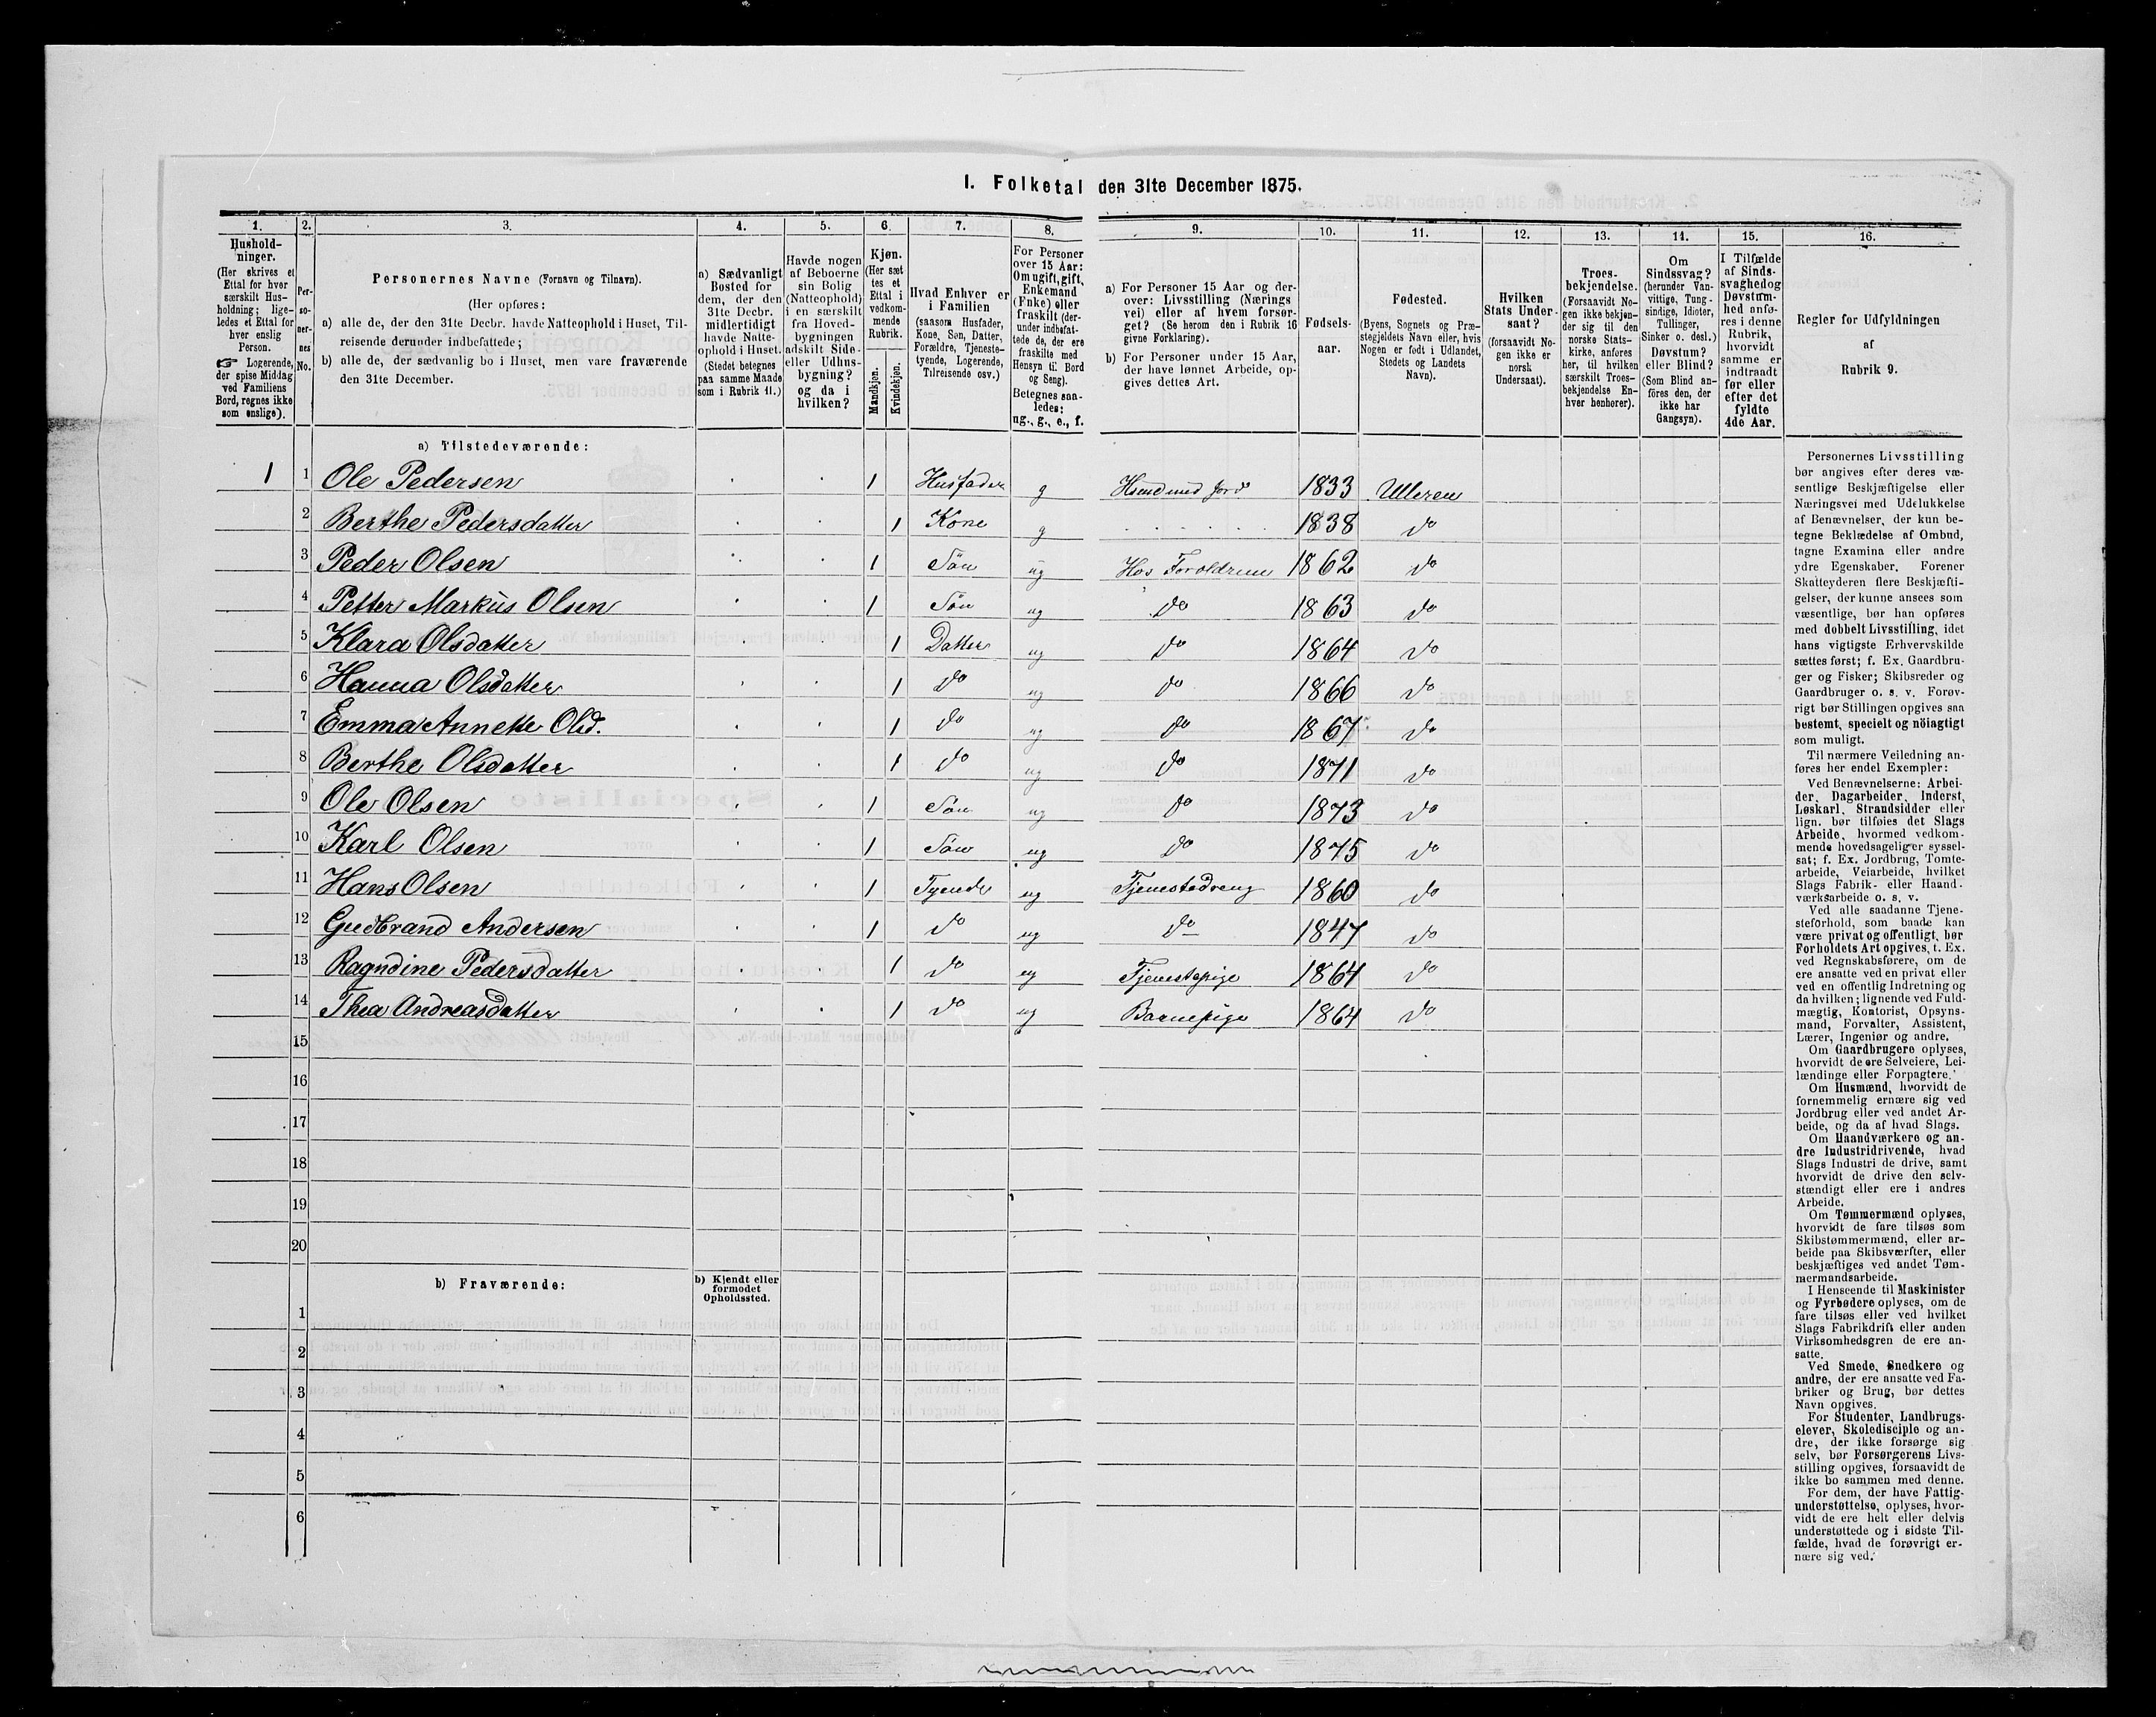 I. Folketal den 31te December 1875.
1. 2. 3. 4. 5. 6. 7. 8. 9. 10. 11. 12. 13. 14. 15. 16.
Hushold-
ninger.
(Her skrives et
Ettal for hver
særskilt Hus-
holdning; lige-
ledes et Ettal for
hver enslig
Person.
☞ Logerende,
der spise Middag
ved Familiens
Bord, regnes ikke
som enslige).
Per-
so-
ner-
nes
No.
Personernes Navne (Fornavn og Tilnavn).
(Her opføres:
a) alle de, der den 31te Decbr. havde Natteophold i Huset, Til-
reisende derunder indbefattede;
b) alle de, der sædvanlig bo i Huset, men vare fraværende
den 31te December.
a) Sædvanligt
Bosted for
dem, der den
31te Decbr.
midlertidigt
havde Natte-
ophold i Huset.
(Stedet betegnes
paa samme Maade
som i Rubrik 11.)
Havde nogen
af Beboerne
sin Bolig
(Natteophold)
i en særskilt
fra Hoved-
bygningen
adskilt Side-
eller Udhus-
bygning?
og da i
hvilken?
Kjøn.
(Her sæt
tes et
Ettal i
vedkom-
mende
Rubrik.
Mandkjøn.
Kvindekjøn.
Hvad Enhver er
i Familien
(saasom Husfader,
Kone, Søn, Datter,
Forældre, Tjeneste-
tyende, Logerende,
Tilreisende osv.)
For Personer
over 15 Aar:
Om ugift, gift,
Enkemand
(Enke) eller
fraskilt (der-
under indbefat-
tede de, der ere
fraskilte med
Hensyn til Bord
og Seng).
Betegnes saa-
ledes:
ug., g., e., f.
a) For Personer 15 Aar og der-
over: Livsstilling (Nærings
vei) eller af hvem forsør-
get? (Se herom den i Rubrik 16
givne Forklaring).
b) For Personer under 15 Aar,
der have lønnet Arbeide, op-
gives dettes Art.
Fødsels-
aar.
Fødested.
(Byens, Sognets og Præ-
stegjeldets Navn eller, hvis
Nogen er født i Udlandet,
Stedets og Landets
Navn).
Hvilken
Stats Under-
saat?
(forsaavidt No-
gen ikke er
norsk
Undersaat).
Troes-
bekjendelse.
(Forsaavidt No-
gen ikke bekjen-
der sig til den
norske Stats-
kirke, anføres
her, til hvilken
særskilt Troes-
bekjendelse En-
hver henhører).
Om
Sindssvag?
(herunder Van-
vittige, Tung-
sindige, Idioter,
Tullinger,
Sinker o. desl.)
Døvstum?
eller Blind?
(Som Blind an-
føres den, der
ikke har
Gangsyn).
I Tilfælde
af Sinds-
svaghed og
Døvstum-
hed anfø-
res i denne
Rubrik,
hvorvidt
samme er
indtraadt
før eller
efter det
fyldte
4de Aar.
Regler for Udfyldningen
af
Rubrik 9.
a) Tilstedeværende:
1 1 Ole Pedersen 1 Husfader g Husmand Jord 1833 Ulleren
2 Berthe Pedersdatter 1 Kone g 1838 do
3 Peder Olsen 1 Søn ug Hos Foroldrene 1862 do
4 Petter Markus Olsen 1 Søn ug do 1863 do
5 Klara Olsdatter 1 Datter ug do 1864 do
6 Hanna Olsdatter 1 do ug do 1866 do
7 Emma Annette Olsd. 1 do ug do 1867 do
8 Berthe Olsdatter 1 do ug do 1871 do
9 Ole Olsen 1 Søn ug do 1873 do
10 Karl Olsen 1 Søn ug do 1875 do
11 Hans Olsen 1 Tyende ug Tjenestedreng 1860 do
12 Gudbrand Andersen 1 do ug do 1847 do
13 Ragndine Pedersdatter 1 do ug Tjenestepige 1864 do
14 Thea Andreasdatter 1 do ug Barnepige 1864 do
15
16
17
18
19
20
b) Fraværende:
b) Kjendt eller
formodet
Opholdssted.
1
2
3
4
5
6
Personernes Livsstilling
bør angives efter deres væ-
sentlige Beskjæftigelse eller
Næringsvei med Udelukkelse
af Benævnelser, der kun be-
tegne Beklædelse af Ombud,
tagne Examina eller andre
ydre Egenskaber. Forener
Skatteyderen flere Beskjæfti-
gelser, der kunne ansees som
væsentlige, bør han opføres
med dobbelt Livsstilling, idet
hans vigtigste Erhvervskilde
sættes først; f. Ex. Gaardbru-
ger og Fisker; Skibsreder og
Gaardbruger o. s. v. Forøv-
rigt bør Stillingen opgives saa
bestemt, specielt og nöiagtigt
som muligt.
Til nærmere Veiledning an-
føres her endel Exempler:
Ved Benævnelserne: Arbei-
der, Dagarbeider, Inderst,
Løskarl, Strandsidder eller
lign. bør tilføies det Slags
Arbeide, hvormed vedkom-
mende hovedsageliger syssel-
sat; f. Ex. Jordbrug, Tomte-
arbeide, Veiarbeide, hvilket
Slags Fabrik- eller Haand-
værksarbeide o. s. v.
Ved alle saadanne Tjene-
steforhold, som baade kan
være privat og offentligt, bør
Forholdets Art opgives, t. Ex.
ved Regnskabsførere, om de
ere ansatte ved en privat eller
ved en offentlig Indretning og
da hvilken; lignende ved Fuld-
mægtig, Kontorist, Opsyns-
mand, Forvalter, Assistent,
Lærer, Ingeniør og andre.
Om Gaardbrugere oplyses,
hvorvidt de ere Selveiere, Lei-
lændinge eller Forpagtere.
Om Husmænd, hvorvidt de
fornemmelig ernære sig ved
Jordbrug eller ved andet Ar-
beide, og da af hvad Slags.
Om Haandværkere og an-
dre Industridrivende, hvad
Slags Industri de drive, samt
hvorvidt de drive den selv-
stændigt eller ere i andres
Arbeide.
Om Tømmermænd oplyses,
hvorvidt de fare tilsøs som
Skibstømmermænd, eller ar-
beide paa Skibsværfter, eller
beskjæftiges ved andet Tøm-
mermandsarbeide.
I Henseende til Maskinister
og Fyrbødere oplyses, om de
fare tilsøs eller ved hvilket
Slags Fabrikdrift eller anden
Virksomhedsgren de ere an-
satte.
Ved Smede, Snedkere og
andre, der ere ansatte ved Fa-
briker og Brug, bør dettes
Navn opgives.
For Studenter, Landbrugs-
elever, Skoledisciple og an-
dre, der ikke forsørge sig
selv, bør Forsørgerens Livs-
stilling opgives, forsaavidt de
ikke bo sammen med denne.
For dem, der have Fattig-
understøttelse, oplyses, hvor-
vidt de ere helt eller delvis
understøttede og i sidste Til-
fælde, hvad de forøvrigt er-
nære sig ved.